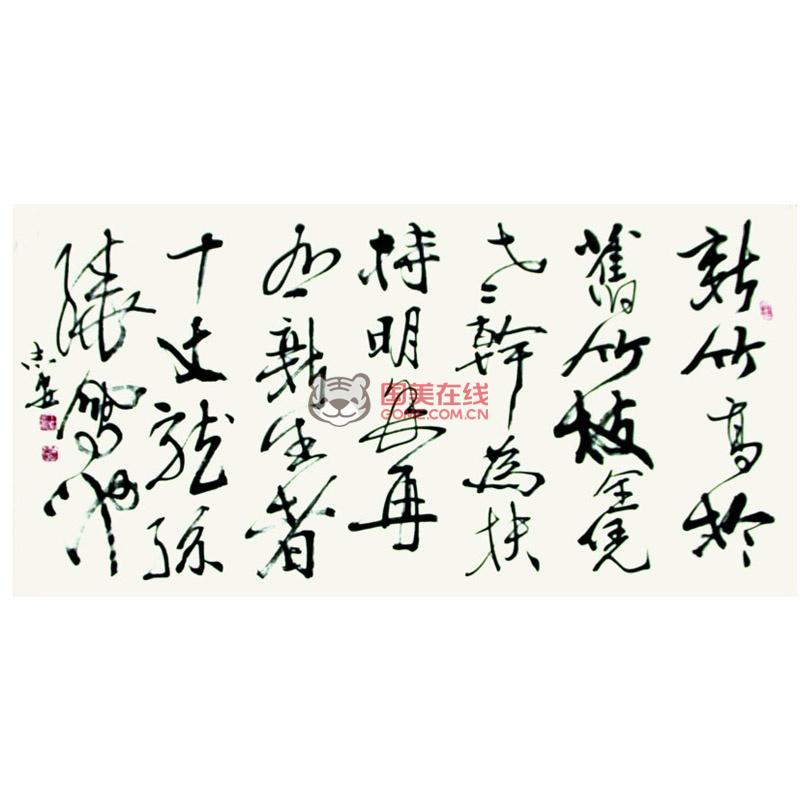 新竹高於
舊竹枝全凭
老幹為扶
持明年再
有新生者
十丈龍孫
繞鳳池
国美在线
GOME.COM.CN